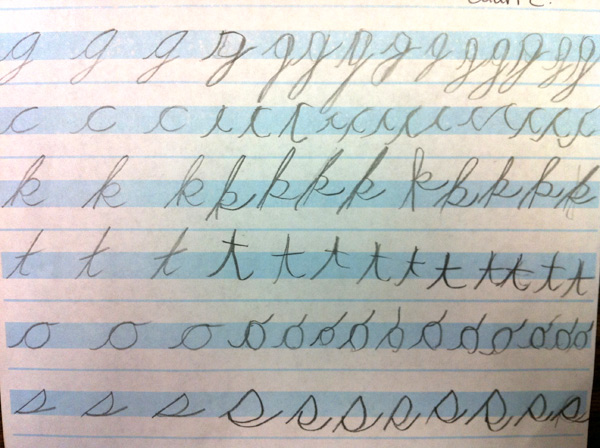 g g g g g g g g g g g g g g
c c c c c c c c c c c c c c
k k k k k k k k k k k k
t t t t t t t t t t t t t
o o o o o o o o o o o o o o
s s s s s s s s s s s